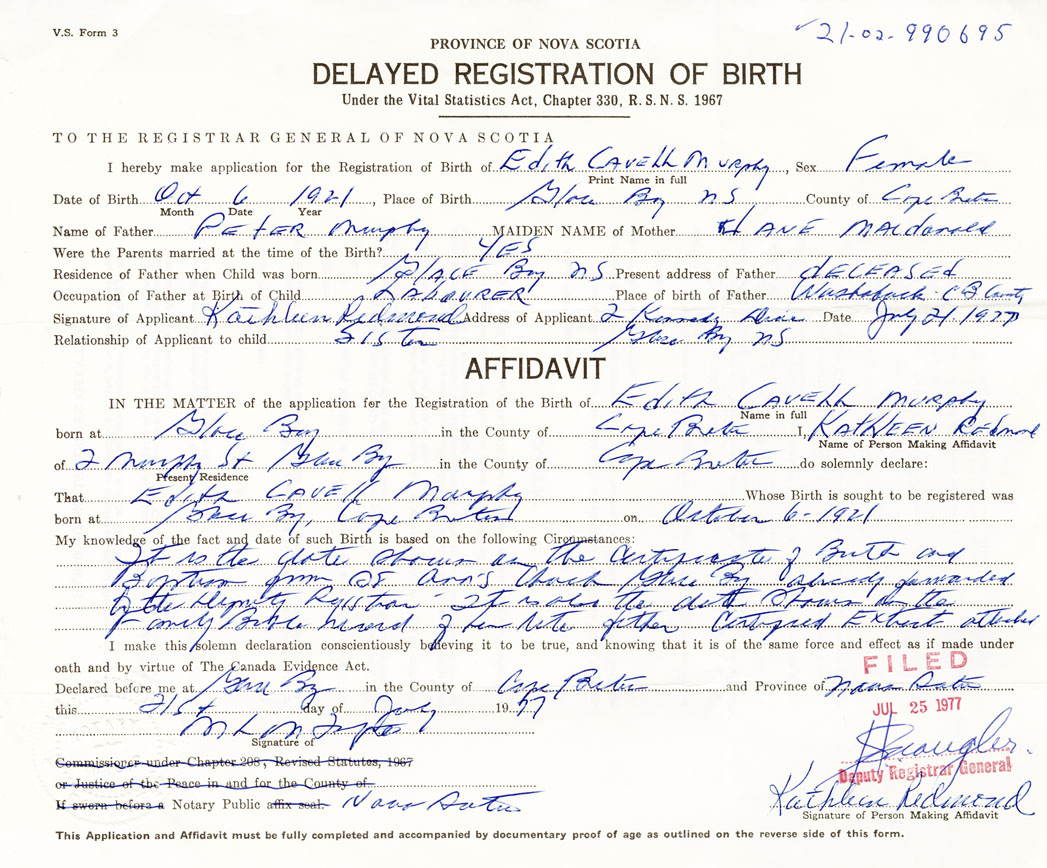 V.S. Form 3
21-02-990695
PROVINCE OF NOVA SCOTIA
DELAYED REGISTRATION OF BIRTH
Under the Vital Statistics Act, Chapter 330, R. S. N. S. 1967
TO THE REGISTRAR GENERAL OF NOVA SCOTIA
I hereby make application for the Registration of Birth of Edith CAVELL Murphy, Sex Female
Print Name in full
Date of Birth Oct 6 1921, Place of Birth Glace Bay NS County of Cape Breton
Month Date Year
Name of Father PETER Murphy MAIDEN NAME of Mother JANE MACdonald
Were the Parents married at the time of the Birth? YES
Residence of Father when Child was born GLACE Bay NS Present address of Father dECEASEd
Occupation of Father at Birth of Child LABOURER Place of birth of Father Washaback C B County
Signature of Applicant Kathleen Redmond Address of Applicant 2 Kennedy Drive Date July 21. 1977
Relationship of Applicant to child Sister Glace Bay NS
AFFIDAVIT
IN THE MATTER of the application for the Registration of the Birth of Edith CAVELL MURPHY
Name in full
born at Glace Bay in the County of Cape Breton I, KATHLEEN REdmond
Name of Person Making Affidavit
of 2 Murphy St Glace Bay in the County of Cape Breton do solemnly declare:
Present Residence
That Edith CAVELL Murphy Whose Birth is sought to be registered was
born at Glace Bay, Cape Breton on October 6-1921
My knowledge of the fact and date of such Birth is based on the following Circumstances:
It is the date shown on the Certificate of Birth and
Baptism from St Ann's Church Glace Bay already forwarded
to the Deputy Registrar - It is also the date shown in the
Family Bible record of her late father Certified Extract attached
I make this solemn declaration conscientiously believing it to be true, and knowing that it is of the same force and effect as if made under
oath and by virtue of The Canada Evidence Act.
FILED
Declared before me at Glace Bay in the County of Cape Breton and Province of Nova Scotia
JUL 25 1977
this 21st day of July 1977
Signature of
Commissioner under Chapter 208, Revised Statutes, 1967
or Justice of the Peace in and for the County of
Deputy Registrar General
If sworn before a Notary Public affix seal. Nova Scotia
Kathleen Redmond
Signature of Person Making Affidavit
This Application and Affidavit must be fully completed and accompanied by documentary proof of age as outlined on the reverse side of this form.